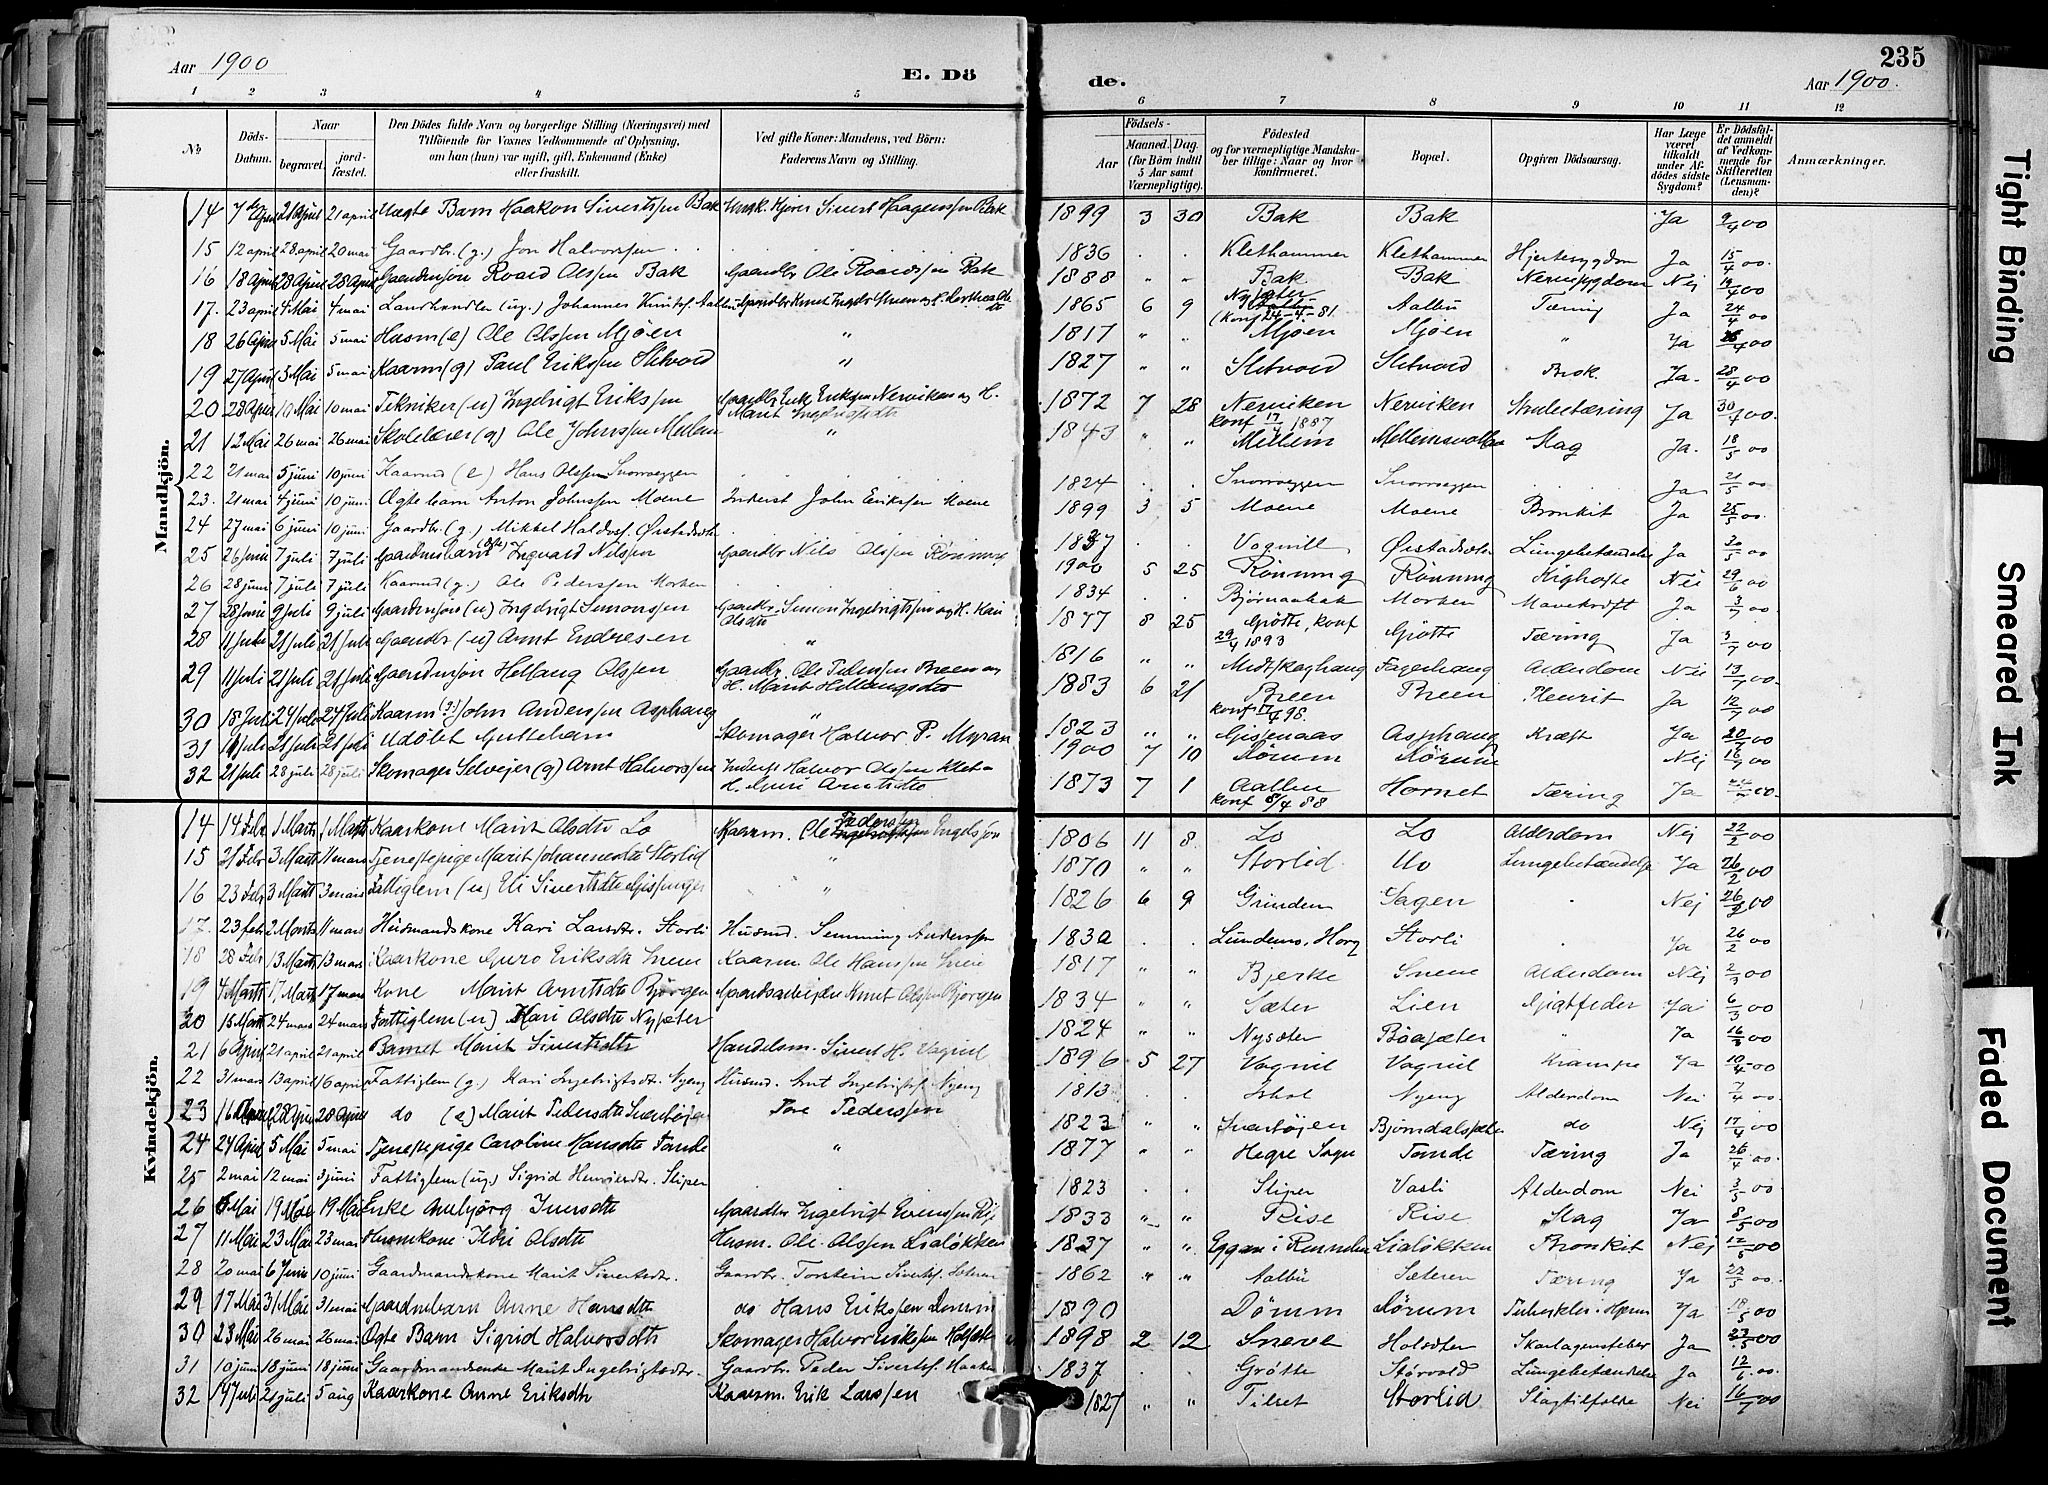 Aar 1900
E. Dö
de.
235
Aar 1900.
1 2 3 4 5 6 7 8 9 10 11 12
No
Döds-Datum.
Naar
begravet.
jord-fæstet.
Den Dödes fulde Navn og borgerlige Stilling (Næringsvei) med
Tilföiende for Voxnes Vedkommende af Oplysning,
om han (hun) var ugift, gift, Enkemand (Enke)
eller fraskilt.
Ved gifte Koner: Mandens, ved Börn:
Faderens Navn og Stilling.
Födsels-
Aar
Maaned. Dag.
(for Börn indtil
5 Aar samt
Værnepligtige).
Födested
og for værnepligtige Mandska-
ber tillige: Naar og hvor
konfirmeret.
Bopæl.
Opgiven Dödsaarsag.
Har Læge
været
tilkaldt
under Af-
dödes sidste
Sygdom?
Er Dödsfal-
det anmeldt
af Vedkom-
mende for
Skifteretten
(Lensman-
den)?
Anmærkninger.
Mandkjön.
14 7 April 21 April 21 april Uægte Barn Haakon Sivertssen Bak Ungk. Sivert Haagenssen Bak 1899 3 30 Bak Bak Ja 9/4 00
15 12 april 28 april 20 mai Gaardbr. (g.) Jon Halvorssen 1836 Klethammer Klethammer Hjertesygdom Ja 15/4 00.
16 18 April 28 April 28 April Gaardmsøn Roard Olssen Bak Gaardbr Ole Roardssen Bak 1888 " " Bak Bak Nervesygdom Nej 19/4 00
17. 23 april 4 Mai 4 mai Landhandler (ug.) Johannes Knutss. Aalbu 1865 6 9 Nysæter (konf 24-4-81. Aalbu Tæring Ja 24/4 00
18 26 April 5 Mai 5 mai Husm (e) Ole Olssen Mjøen " 1817 " " Mjøen Mjøen " Ja 4 00
19 27 April 3 Mai 5 mai Kaarm (g) Paul Erikssen Sletvold " 1827 " " Sletvold Sletvold Brok. Ja. 28/4 00
20 28 April 10 Mai 10 mai Tekniker (u) Ingebrigt Erikssen Gaardbr Erik Erikssen Nerviken og H. Marit Ingebrigtsdtr 1872 7 28 Nerviken konf 17/4 1887 Nerviken Strubetæring Ja 30/4 00.
21 12 Mai 26 mai 26 mai Skolelærer (g) Ole Johnssen Mellem " 1843 " " Mellem Slag Ja. 18/5 00
22 21 mai 5 juni 10 juni Kaarmd (e) Hans Olssen Snoeveggen 1824 Snoeveggen Snoeveggen Ja 21/5 00
23. 21 mai 4 juni 10 juni Ægte barn Anton Johnssen Moene Inderst John Erikssen Moene 1899 3 5 Moene Moene Bronkit Ja 25/5 00.
24 27 mai 6 juni 10 juni Gaardbr. (g.) Mikkel Haldosf. Ørstadsæter 1837 Vognill Ørstadsæter Lungebetændelse Ja 30/5 00
25 26 juni 7 juli 7 juli Gaardmsbarn Ingvard Nilssen Gaardbr Nils Olssen Rønning 1900 5 25 Rønning Rønning Kighoste Nei 29/6 00
26 28 juni 7 juli 7 juli Kaarmd (g.) Ole Pederssen Morken 1834 Bjørnaabak Morken Mavekræft Ja 3/7 00
27 28 juni 9 juli 9 juli Gaardmsøn (u) Ingebrigt Simonssen Gaardbr. Simon Ingebrigtssen og H. Kari Olsdtr 1877 8 25 Gjøtte, konf 29/4 1893 Gjøtte Tæring Ja 3/7 00
28 11 Juli 21 juli 21 juli Gaardbr (u) Arnt Endresen " 1816 " " Midtskaghaug Fagerhaug Alderdom Nei 13/7 00.
29 11 juli 21 juli 21 juli Gaardmsøn Hellaug Olssen Gaardbr. Ole Pederssen Breen og H. Marit Hellaugsdtr 1883 6 21 Breen konf 17/4 98. Breen Pleurit Ja 12/7 00
30 18 Juli 24 Juli 24 Juli Kaarm (g) John Anderssen Asphaug " 1823 " " Gisnaas Asphaug Kræft Ja 20/7 00
31 11 Juli 21 juli 21 juli Udøbt Guttebarn Skomager Halvor P. Myran 1900 7 10 Dørum Dørum Nej 16/7 00
32 21 juli 28 juli 28 juli Skomager Selvejer (g) Arnt Halvorssen Inderst Halvor Olssen H. Guri Arntsdtr 1873 7 1 Aalbu konf 8/4 88 Hornet Tæring Ja 00.
Kvindekjön.
14 14 Febr 1 Marts 1 Marts Kaarkone Marit Olsdtr Lo Kaarm. Ole Pederssen Engelsjon 1806 11 8 Lo Lo Alderdom Nej 22/2 00
15 21 Febr 3 Marts 11 mars Tjenestepige Marit Johannesdtr Storlid " 1870 " " Storlid Uv Lungebetændelse Ja 26/2 00
16 23 Febr 3 Marts 3 mars Fattiglem (u) Eli Sivertsdtr " 1826 6 9 Grinden Hagen Nej 26/2 00
17. 23 febr 2 Marts 11 mars Husmandskone Kari Larsdtr. Storli Husmd. Semming Anderssen 1830 Lundemo, Horg Storli Ja 26/2 00
18 28 Febr 13 Marts 13 mars Kaarkone Guro Eriksdtr Sneve Kaarm Ole Hanssen Sneve 1817 " " Bjerke Sneve Alderdom Nej 2/3 00
19 4 Marts 17 Marts 17 mars Kone Marit Arntsdtr Bjørgen Gaardsarbejder Knut Olssen Bjørgen 1834 " " Sæter Lien Gigtfeber Ja 6/3 00
20 15 Marts 24 mars 24 mars Fattiglem (u) Kari Olsdtr Nysæter 1824 " Nysæter Bøasæter " Ja 16/3 00
21 6 April 21 april 21 april Barnet Marit Sivertsdtr Handelsm. Sivert H. Vognil 1896 5 27 Vognil Vognil Krampe Ja 10/4 00
22 31 mars 13 april 16 april Fattiglem (g.) Kari Ingebrigtsdtr. Nyeng Husmd. Arnt Ingebrigtsf. Nyeng 1813 Nyeng Alderdom Nei 7/4 00.
23 16 April 28 April 28 April do (e) Marit Pedersdtr Svartøjen Tore Pederssen 1823 " " Svartøjen Bjørndalsæter do Nej 17/4 00
24 24 April 5 Mai 5 mai Tjenestepige Caroline Hansdtr Tande " 1877 " " Hegre Sogn Tande Tæring Ja 26/4 00.
25 2 mai 12 mai 3 juni Fattiglem (ug.) Sigrid Henriksdtr. Sliper 1823 Sliper Vasli Alderdom Nei 3/5 00.
26 6 Mai 19 Mai 19 Mai Enke Anbjørg Iversdtr Gaardbr Ingebrigt Evenssen 1833 " " Rise Rise Slag Ja 8/5 00
27 11 Mai 23 Mai 23 mai Husmkone Ildri Olsdtr Husm. Ole Olssen Lialøkken 1837 " " Eggan i Rennebu Lialøkken Bronkit Nej 12/5 00
28 20 mai 6 Juni 10 juni Gaardmandskone Marit Sivertsdtr. Gaardbr. Torstein Sivertsf. 1862 " " Aalbu Sæteren Tæring Ja 22/5 00.
29 17 Mai 31 Mai 31 mai Gaardmsbarn Anne Hansdtr do Hans Erikssen Dørum 1890 Dørum Dørum Ja 18/5 00
30 23 Mai 26 mai 26 mai Ægte Barn Sigrid Halvorsdtr Skomager Halvor Erikssen 1898 2 12 Sneve Holsæter Skarlagensfeber Ja 23/5 00
31 10 juni 18 juni 18 juni Gaardmandsenke Marit Ingebrigtsdtr. Gaardbr. Peder Sivertsf. 1837 Grøtte Størvold Lungebetændelse Ja 12/6 00.
32 14 Juli 21 juli 5 aug Kaarkone Anne Eriksdtr Kaarm. Erik Larssen 1827 " " Tilset Storlid Slagtilfælde Nei 16/7 00
Tight Binding
Smeared Ink
Faded Document